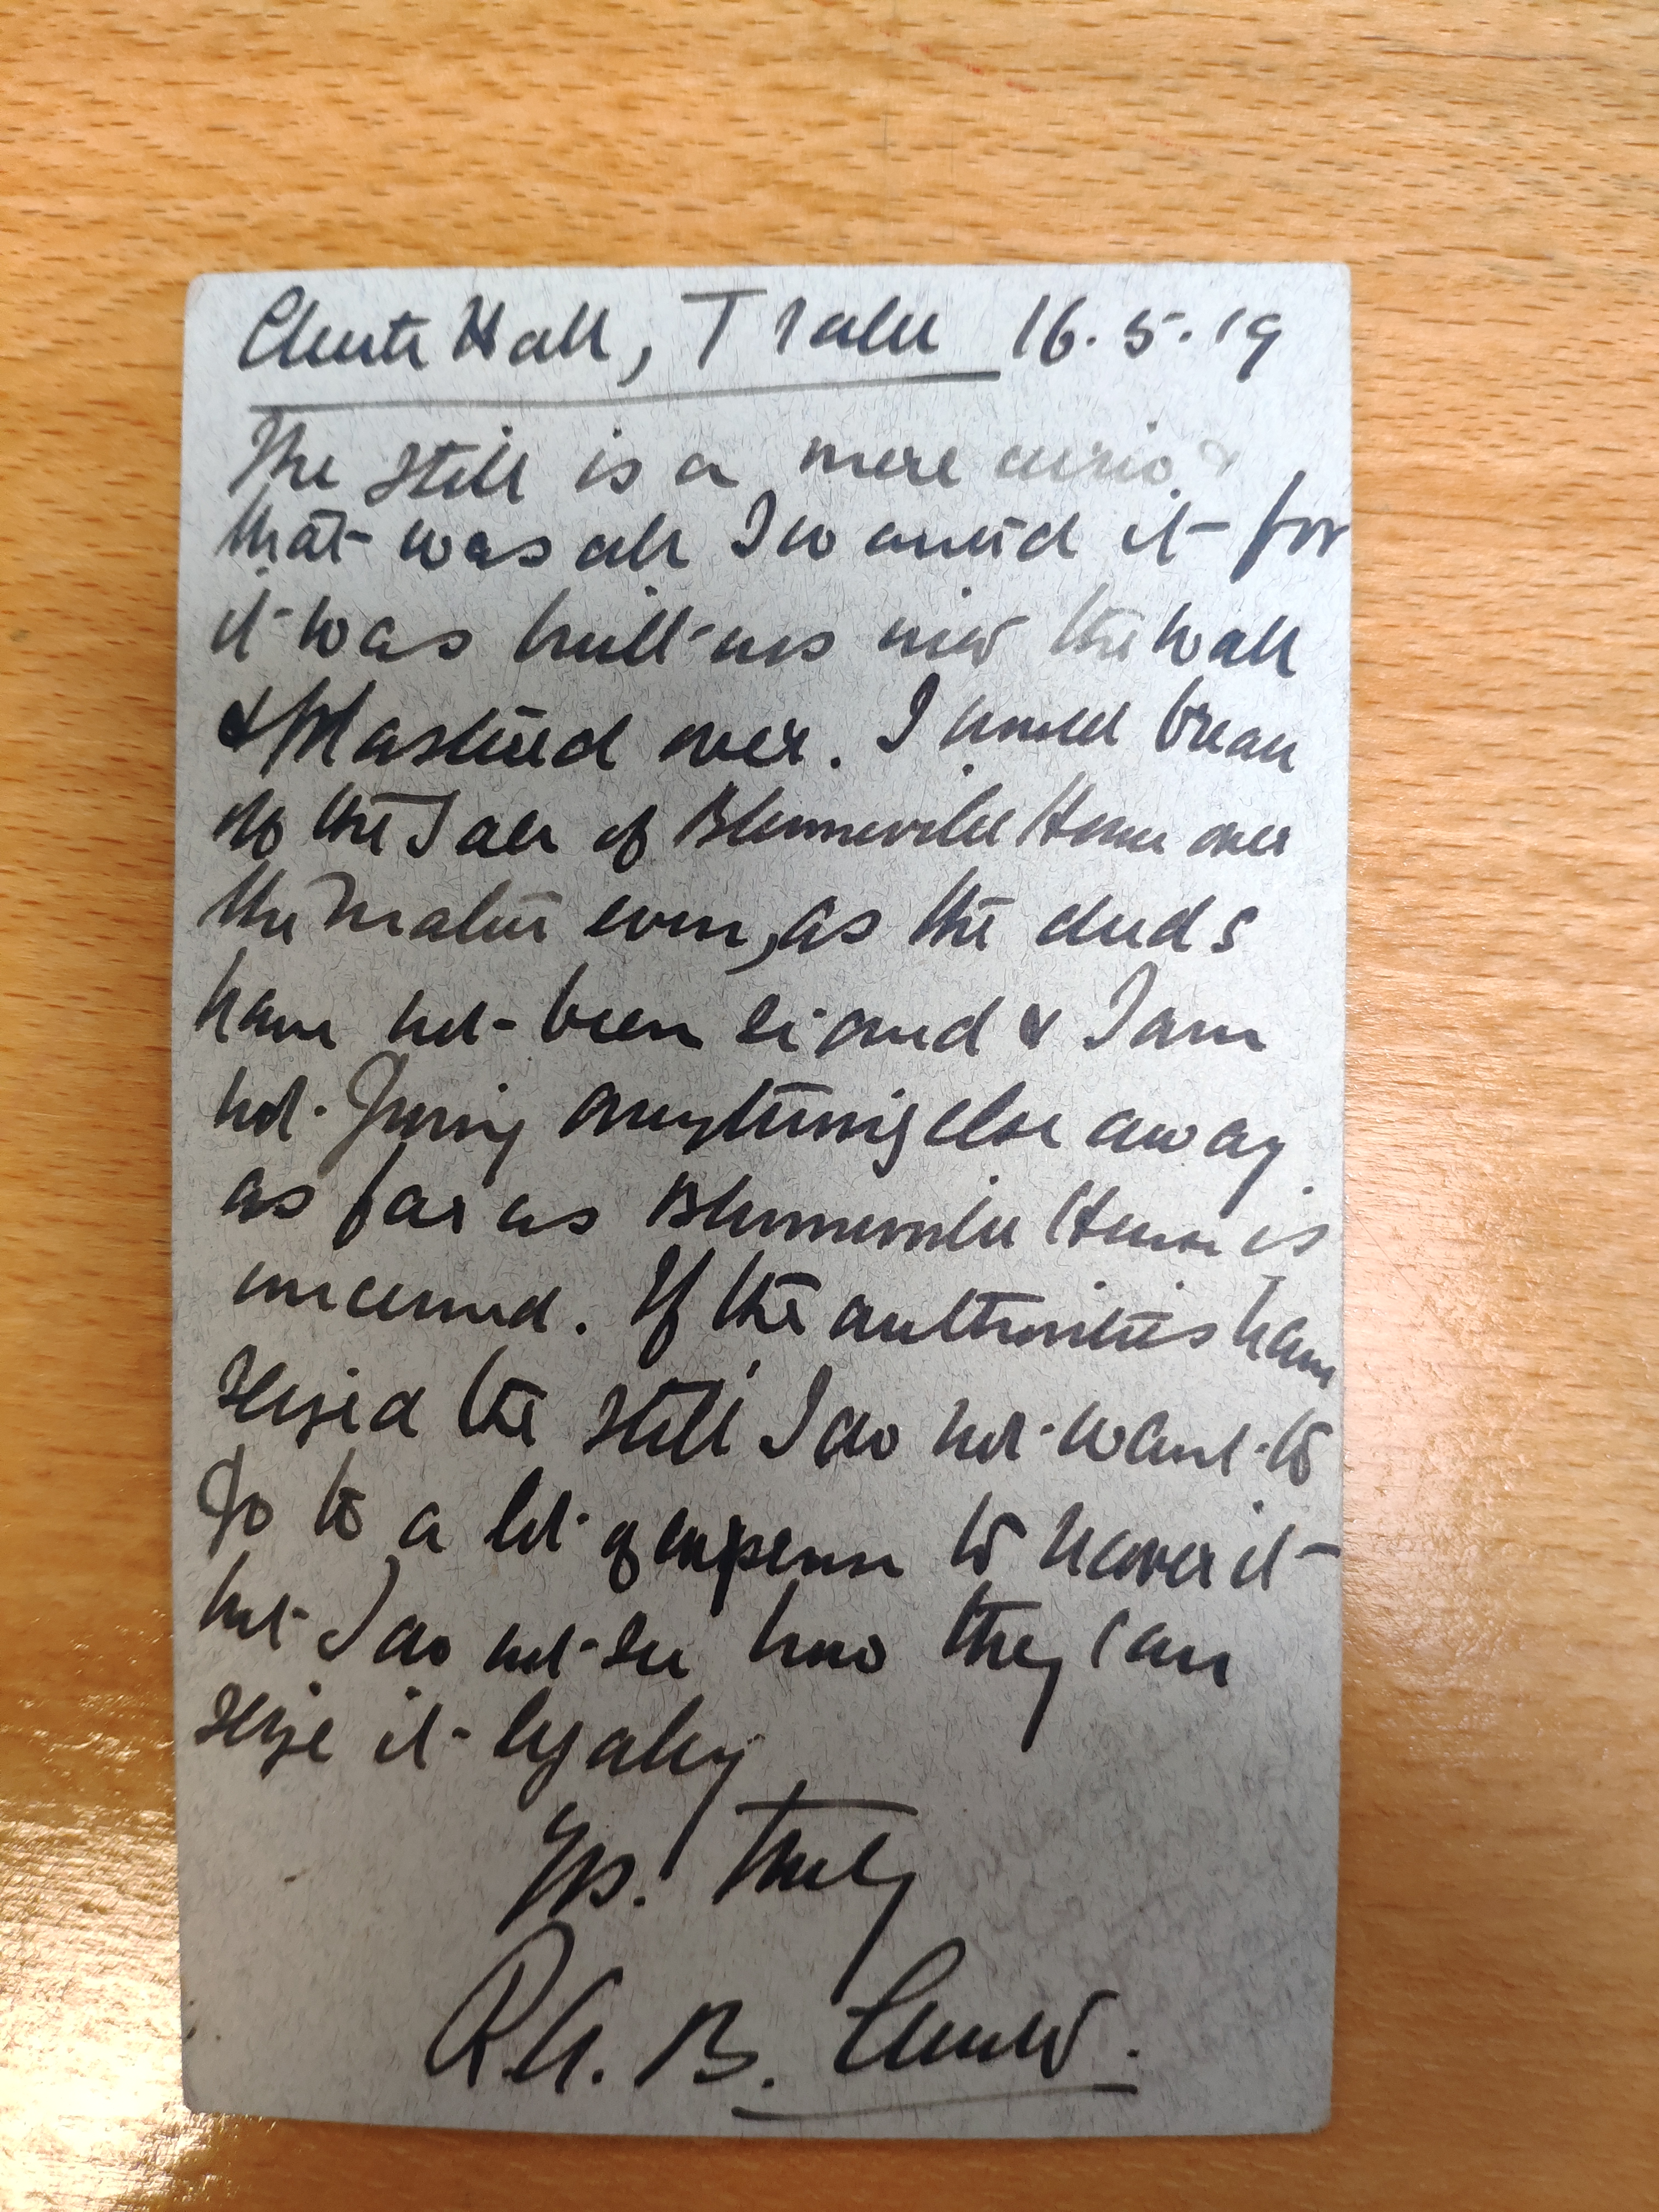 Chute Hall, Tralee 16.5.19
The still is a mere curio &
that was all I wanted it for
it was built up into the wall
& plastered over. I would break
off the Sale of Blennerville House over
the matter even, as the deeds
have not been signed & I am
not giving anything else away
as far as Blennerville House is
concerned. If the authorities have
seized the still I do not want to
go to a lot of expense to recover it
but I do not see how they can
seize it legally
Yrs. truly
R.A. B. Chute.